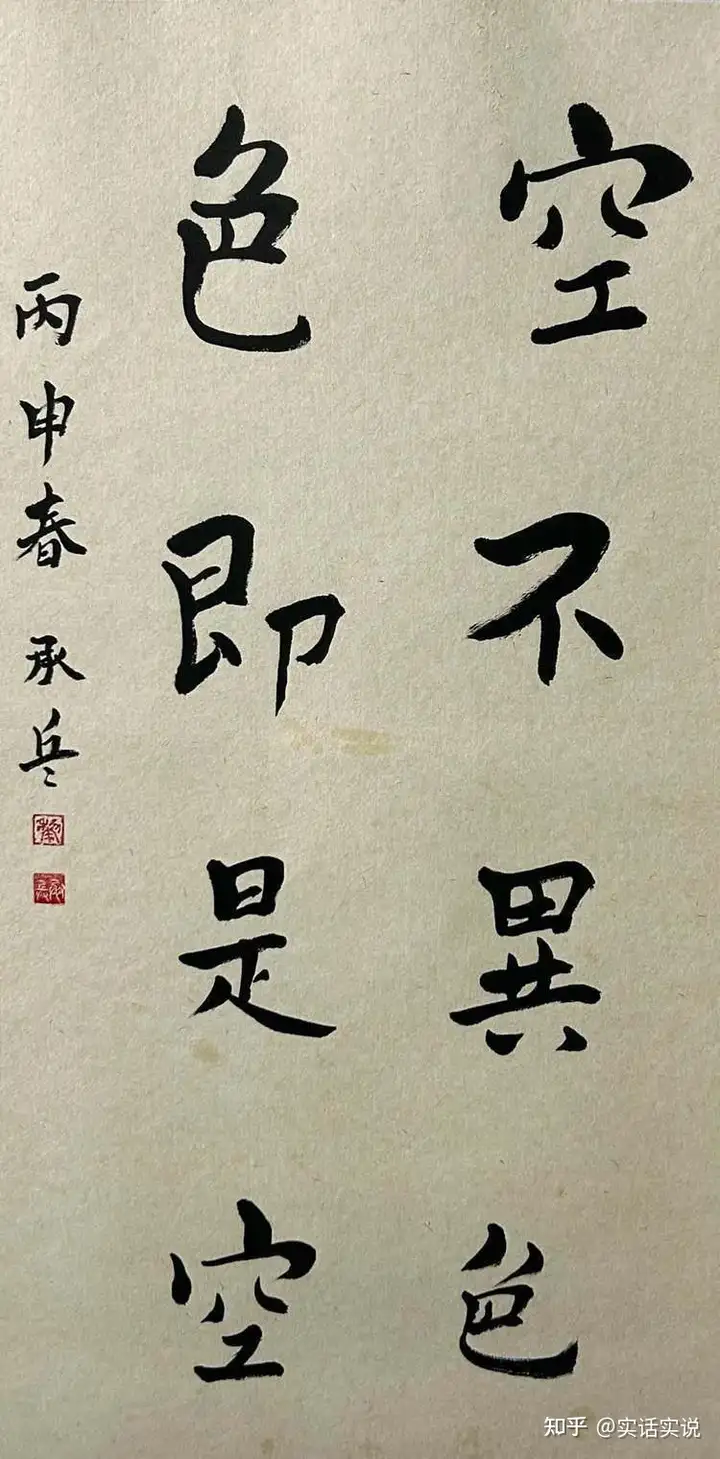 空不異色
色即是空
丙申春 承兵
知乎 @实话实说